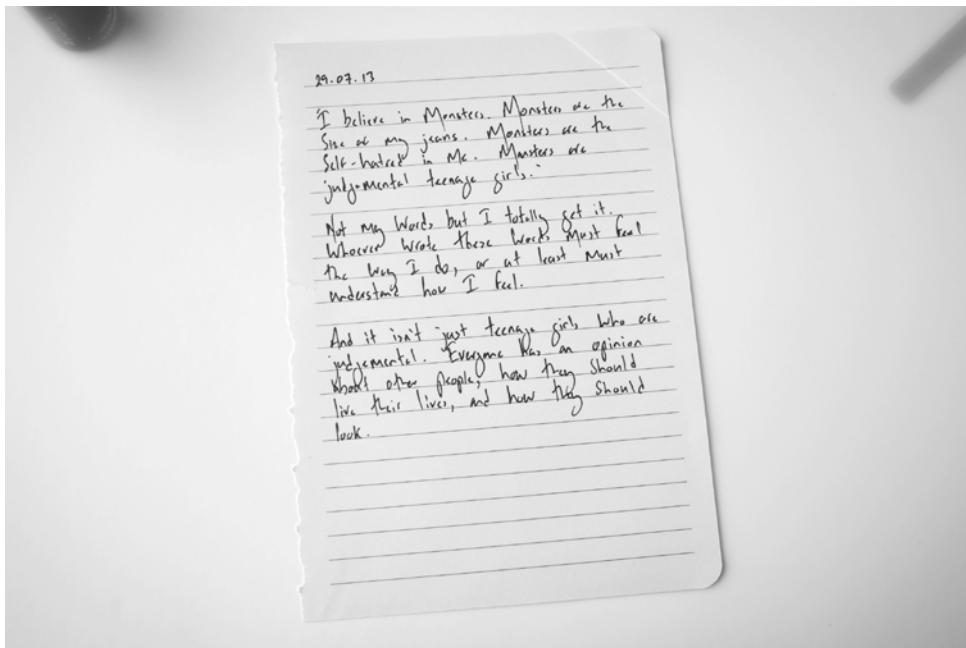 29.07.13
"I believe in Monsters. Monsters are the
Size of my jeans. Monsters are the
Self-hatred in Me. Monsters are
judgemental teenage girls."
Not my Words but I totally get it.
Whoever wrote these words Must feel
the way I do, or at least Must
understand how I feel.
And it isn't just teenage girls who are
judgemental. Everyone has an opinion
about other people, how they should
live their lives, and how they should
look.